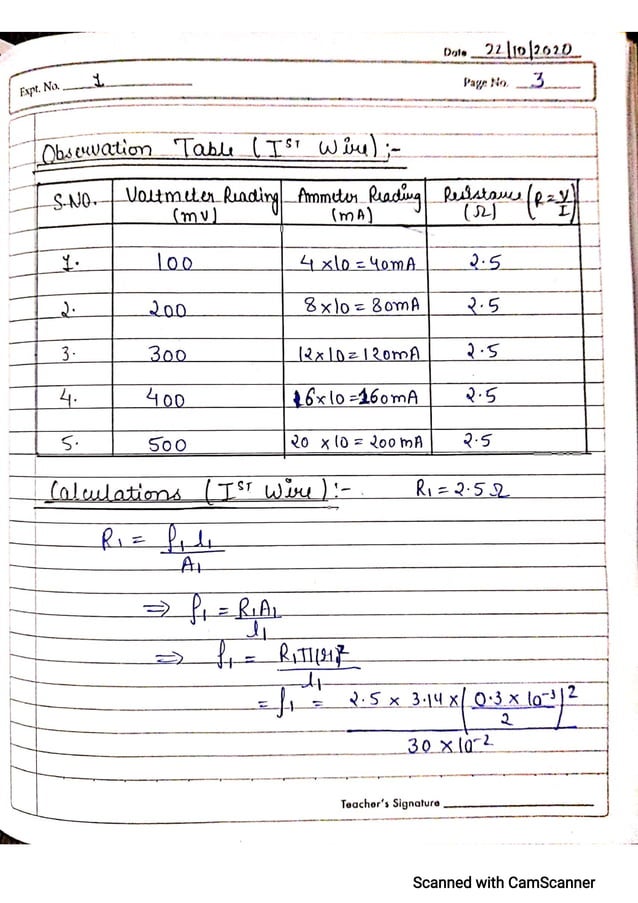 Date 22/10/2020
Expt. No. 1 Page No. 3
Observation Table (Iˢᵀ Wire):-
S.NO. Voltmeter Reading (mV) Ammeter Reading (mA) Resistance (Ω) (R=V/I)
1. 100 4x10=40mA 2.5
2. 200 8x10=80mA 2.5
3. 300 12x10=120mA 2.5
4. 400 16x10=160mA 2.5
5. 500 20 x10=200mA 2.5
Calculations (Iˢᵀ Wire):- R₁=2.5Ω
R₁ = ρ₁ l₁ / A₁
⇒ ρ₁ = R₁A₁ / l₁
⇒ ρ₁ = R₁π(r₁)² / l₁
= ρ₁ = 2.5 x 3.14 x (0.3 x 10⁻³ / 2)² / 30 x 10⁻²
Teacher's Signature
Scanned with CamScanner